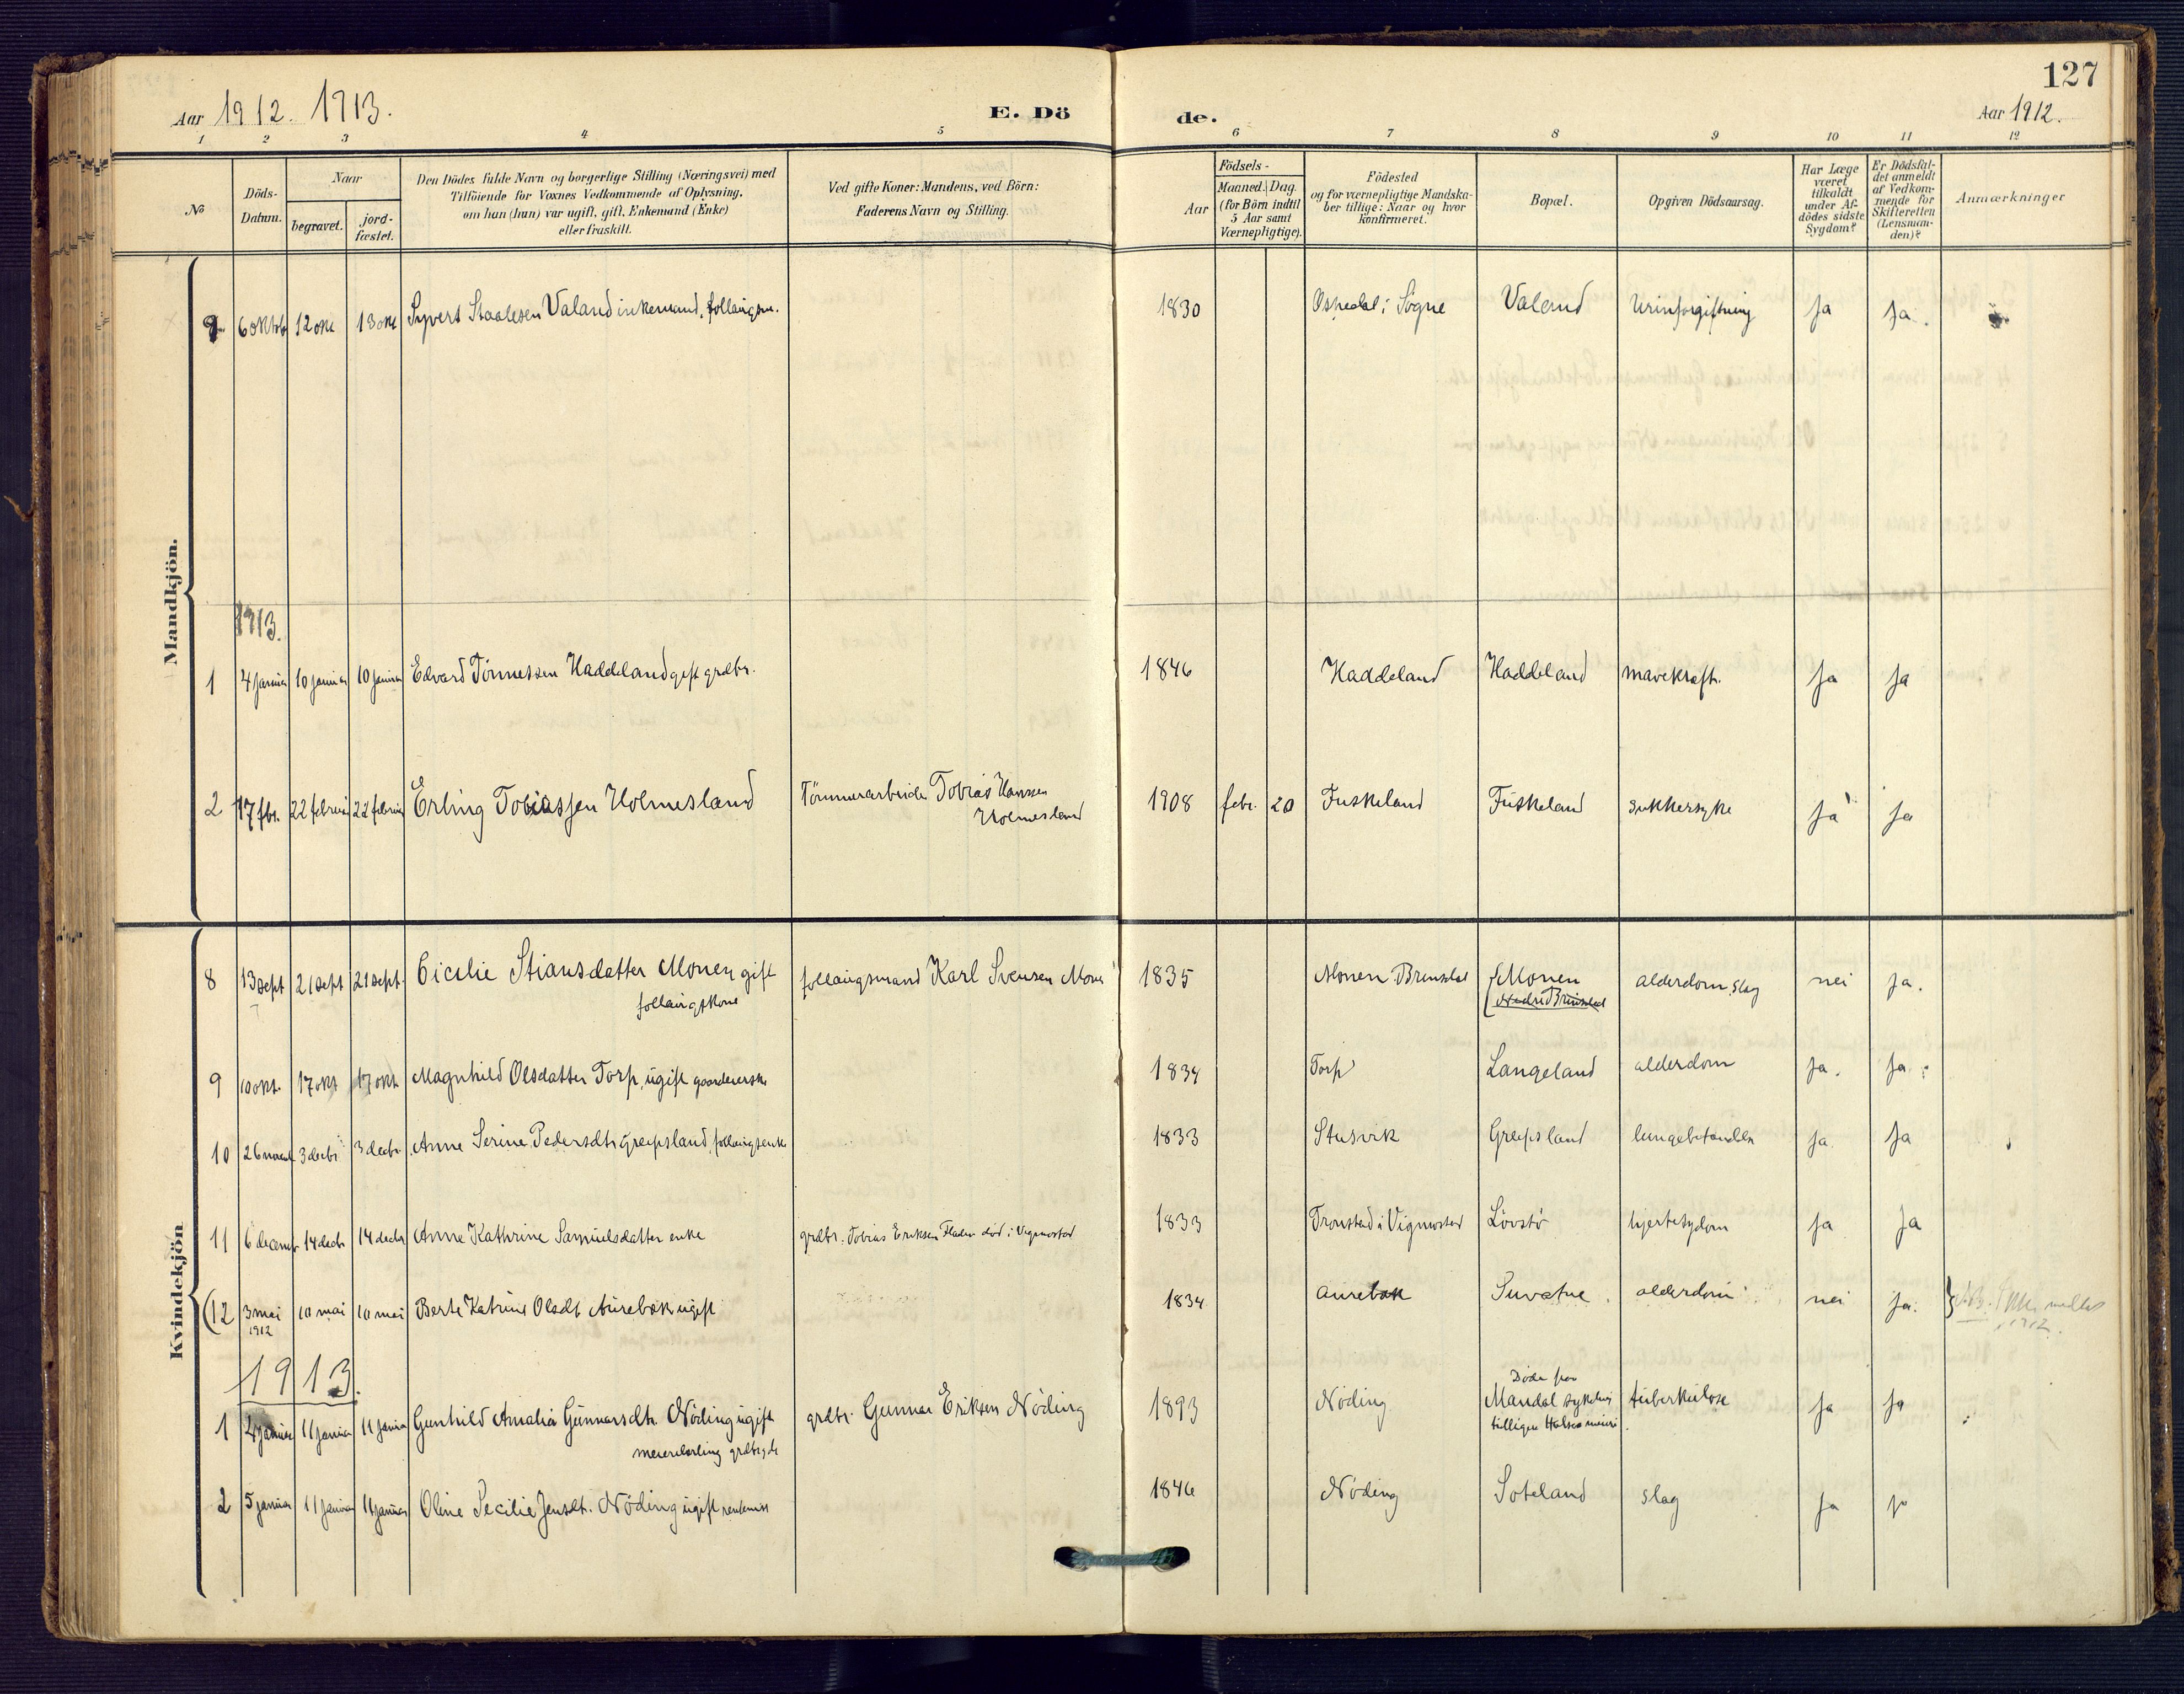 127
Aar 1912. 1913.
E. Dö
de.
Aar 1912.
1 2 3 4 5 6 7 8 9 10 11 12
No
Döds-
Datum.
Naar
begravet.
jord-
fæstet.
Den Dödes fulde Navn og borgerlige Stilling (Næringsvei) med
Tilföiende for Voxnes Vedkommende af Oplysning,
om han (hun) var ugift, gift, Enkemand (Enke)
eller fraskilt.
Ved gifte Koner: Mandens, ved Börn:
Faderens Navn og Stilling.
Aar
Födsels-
Maaned. Dag.
(for Börn indtil
5 Aar samt
Værnepligtige).
Födested
og for værnepligtige Mandska-
ber tillige: Naar og hvor
konfirmeret.
Bopæl.
Opgiven Dödsaarsag.
Har Læge
været
tilkaldt
under Af-
dödes sidste
Sygdom?
Er Dödsfal-
det anmeldt
af Vedkom-
mende for
Skifteretten
(Lensman-
den)?
Anmærkninger
Mandkjön.
9 6 oktob 12 okt 13 okt Syvert Staalesen Valand enkemand, follaugsm. 1830 Ospedal i Sögne Valand Urinforgiftning ja ja.
1913.
1 4 januar 10 januar 10 januar Edvard Tönnessen Haddeland gift grdbr. 1846 Haddeland Haddeland mavekræft. ja ja
2 17 fbr. 22 februar 22 februar Erling Tobiassen Holmesland Tömmerarbeider Tobias Hanssen
Holmesland
1908 febr. 20 Fuskeland Fuskeland sukkersyke ja ja
Kvindekjön
8 13 sept 21 sept 21 sept. Cicilie Stiansdatter Monen gift
follaugskone
follaugsmand Karl Svensen Monen 1835 Monen Brinsdal Monen
Nedre Brinsdal
alderdom, slag nei ja.
9 10 okt. 17 okt 17 okt. Magnhild Olsdatter Torp, ugift 1834 Torp Langeland alderdom ja. ja.
10 26 novemb 3 decbr 3 decbr. Anne Serine Pedersdtr Greipsland, follaugsenke 1833 Stusvik Greipsland lungebetændelse ja. ja
11 6 decemb 14 decbr 14 decbr Anne Kathrine Samuelsdatter enke grdbr. Tobias Eriksen död i Vigmostad 1833 Tronstad i Vigmostad Lövstö hjertesydom ja ja
(12 3 mai
1912
10 mai 10 mai Berte Katrine Olsdt. Aurebæk ugift 1834 Aurebæk Suvatne alderdom nei ja.
N.B.
1912.
1913.
1 4 januar 11 januar 11 januar Gunhild Amalia Gunnarsdtr. Nöding ugift
grdbr. Gunnar Eriksen Nöding 1893 Nöding
Döde paa
Mandal sykehus
tilligere Halse meieri.
tuberkulose ja ja
2 5 januar 11 januar 11 januar Oline Secilie Jensdt. Nöding ugift 1846 Nöding Soteland slag ja ja